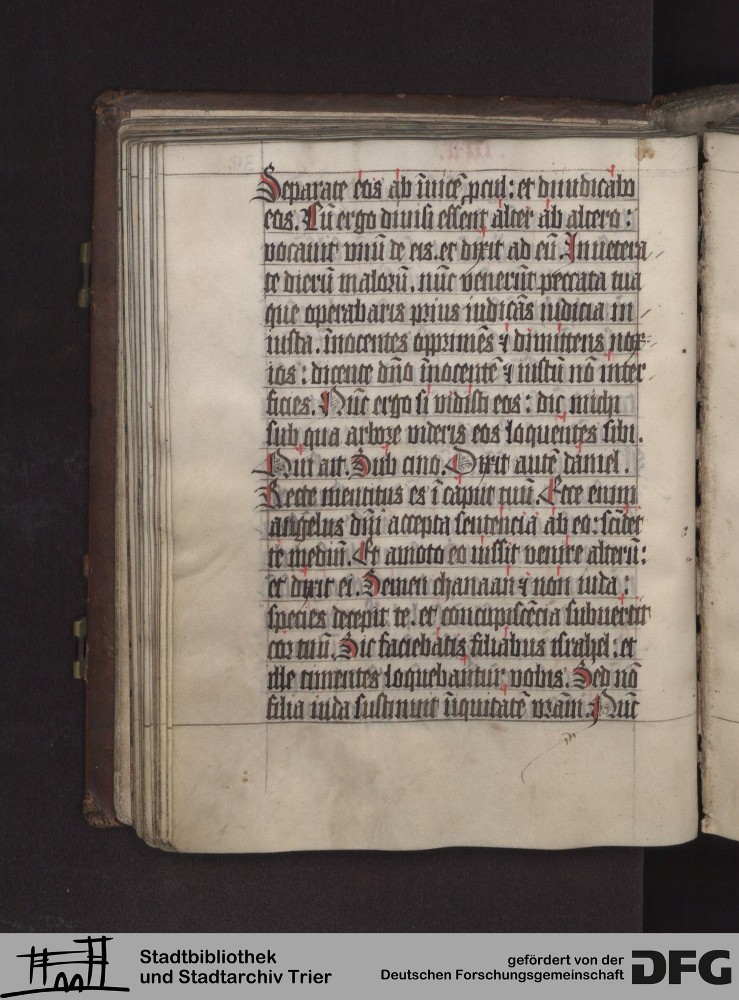 Separate eos ab īuicē ꝓcul: et diiudicabo
eos. Cū ergo diuisi essent alter ab altero:
vocauit vnū de eis. et dixit ad eū. Inuetera
te dierū malorū. nūc venerūt peccata tua
que operabaris prius iudicās iudicia in
iusta. īnocentes opprimēs ⁊ dimittens nox
ios: dicente dño īnocentē ⁊ iustū nō inter
ficies. Nūc ergo si vidisti eos: dic michi
sub qua arbore videris eos loquentes sibi.
Qui ait. Sub cino. Dixit autē daniel.
Recte mentitus es ī caput tuū. Ecce enim
angelus dñi accepta sentencia ab eo: scīdet
te mediū. Et amoto eo iussit venire alterū:
et dixit ei. Semen chanaan ⁊ non iuda:
species decepit te. et concupiscēcia subuertit
cor tuū. Sic faciebatis filiabus israhel: et
ille timentes loquebantur vobis. Sed nō
filia iuda sustinuit īiquitatē vrām. Nūc
Stadtbibliothek
und Stadtarchiv Trier
gefördert von der
Deutschen Forschungsgemeinschaft
DFG